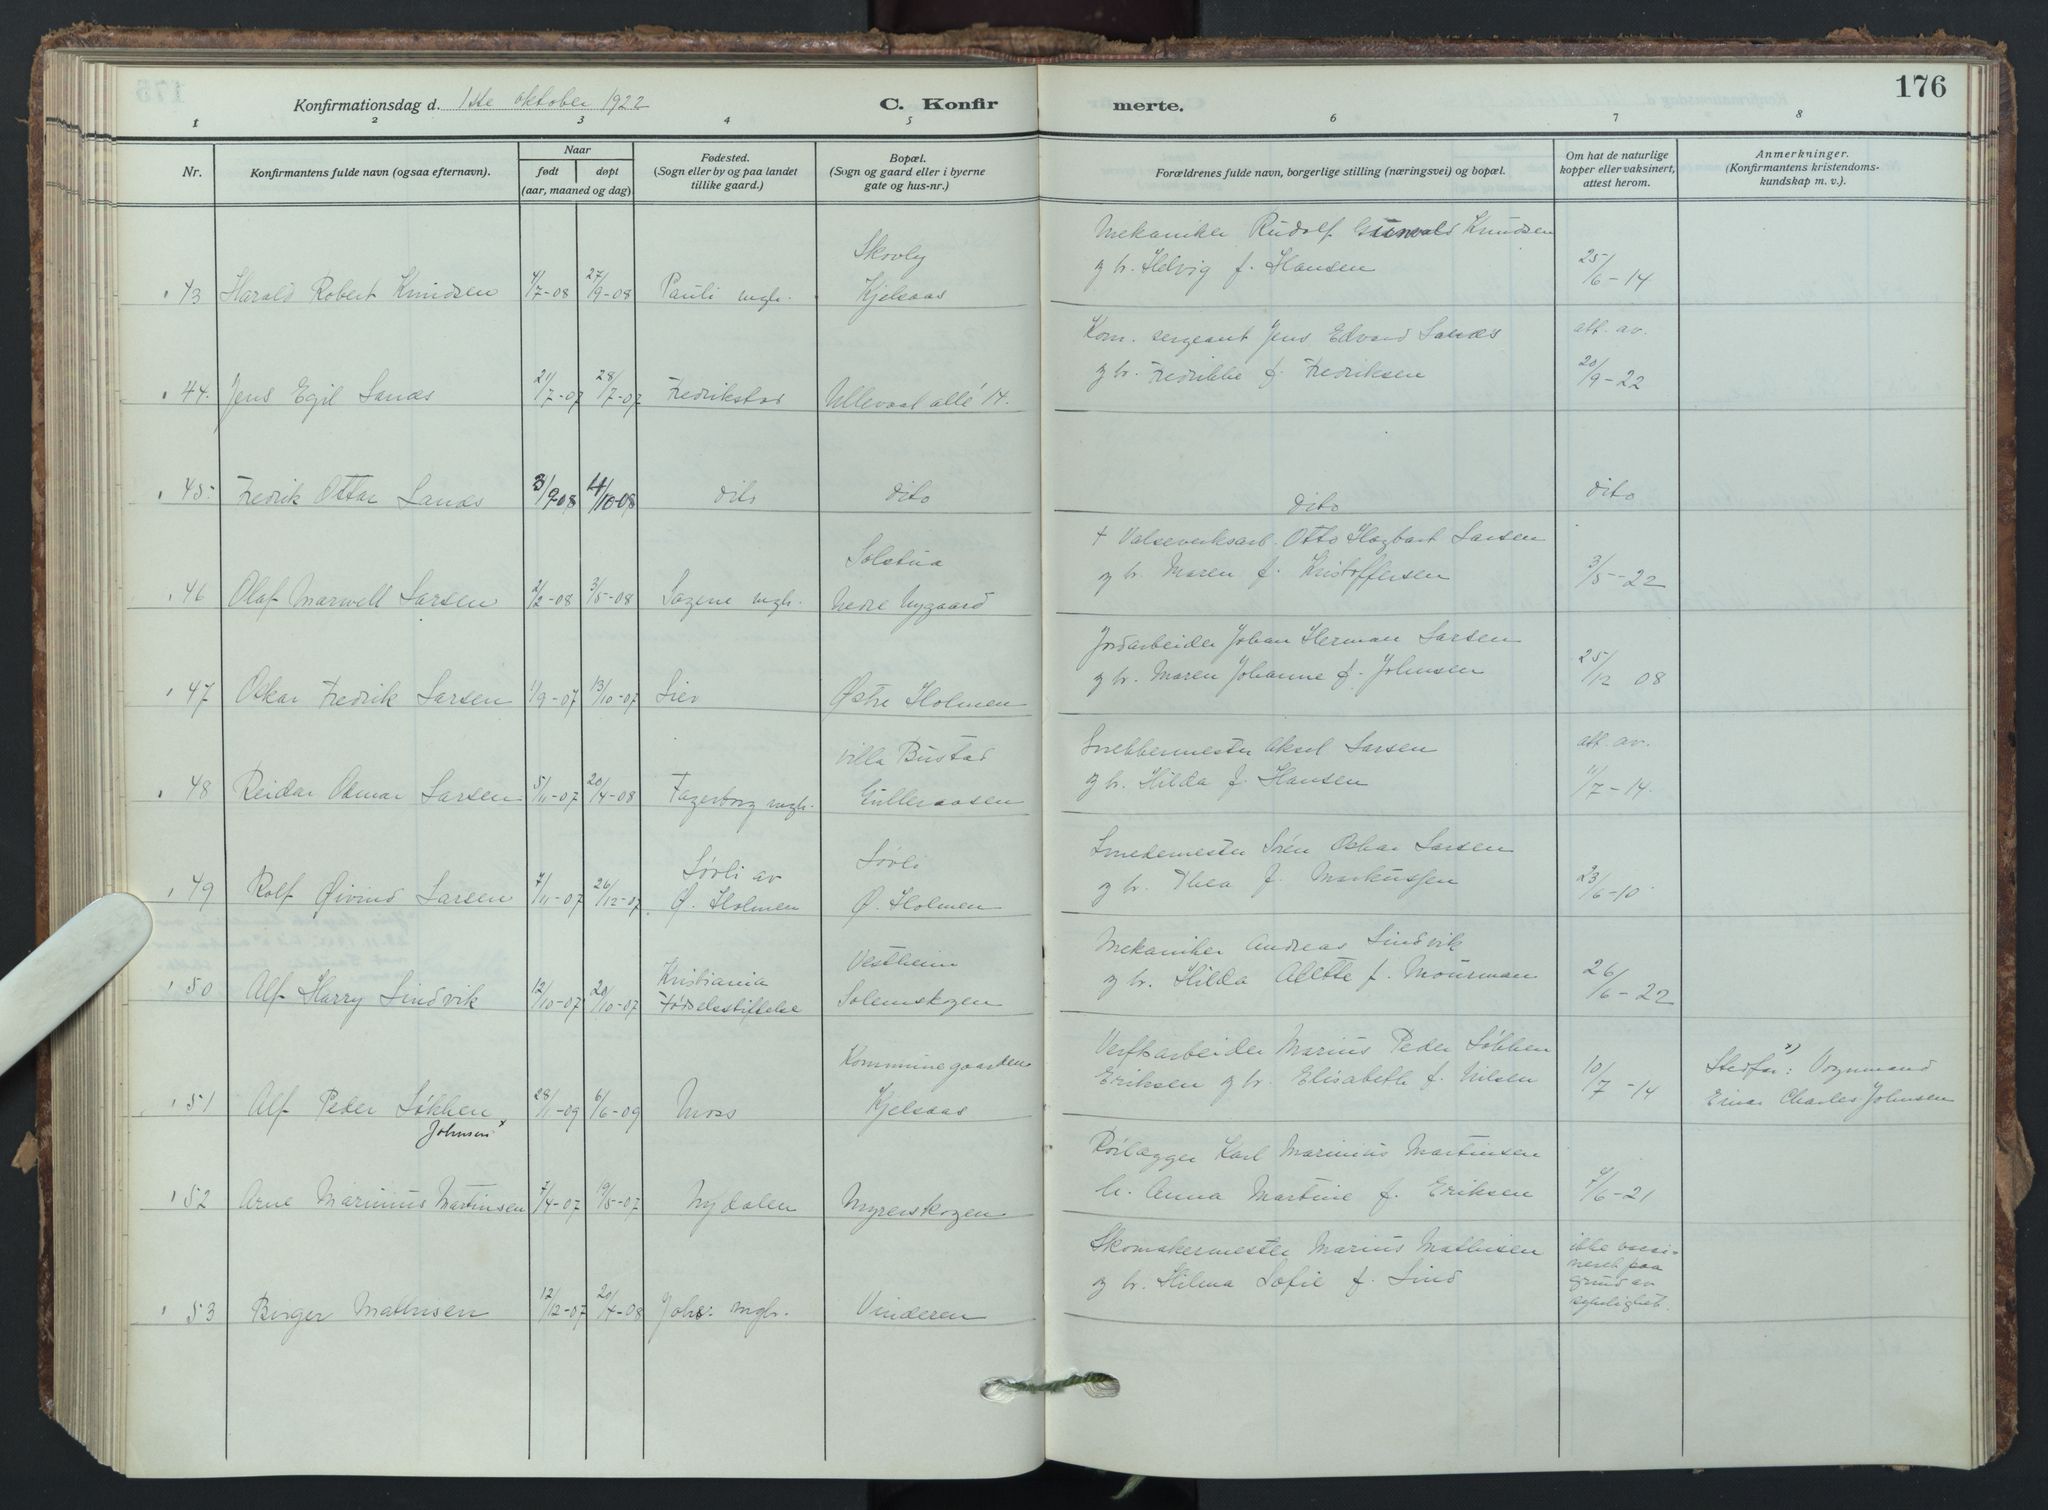 176
Konfirmationsdag d. 1ste oktober 1922
C. Konfirmerte.
1 2 3 4 5 6 7 8
Nr.
Konfirmantens fulde navn (ogsaa efternavn).
Naar
født døpt
(aar, maaned og dag)
Fødested.
(Sogn eller by og paa landet
tillike gaard.)
Bopæl.
(Sogn og gaard eller i byerne
gate og hus-nr.)
Forældrenes fulde navn, borgerlige stilling (næringsvei) og bopæl.
Om hat de naturlige
kopper eller vaksinert,
attest herom.
Anmerkninger.
(Konfirmantens kristendoms-
kundskap m. v.).
Skovly
Mekaniker Rudolf Gunvald Knudsen
43 Harald Robert Knudsen 4/7-08 27/9-08 Pauli mgh. Kjelsaas
og h. Helvig f. Hansen 25/6-14
Kom. sergeant Jens Edvard Sandås att. av.
og h. Fredrikke f. Fredriksen 20/9-22
44. Jens Egil 21/7-07 28/7-07 Fredrikstad Ullevaal allé 14.
45. Fredrik Ottar 3/9-08 4/10-08 dito dito
dito dito
Solstua
† Valseverksarb. Otto Hagbart Larsen
46 Olaf Marwell Larsen 2/2-08 3/5-08 Sagene mgh. Nedre Nygaard
og h. Maren f. Kristoffersen 3/5-22
Jordarbeider Johan Herman Larsen
47 Oskar Fredrik Larsen 1/9-07 13/10-07 Lier Østre Holmen
og h. Maren Johanne f. Johnsen 25/12 08
Villa Bustad
Snekkermester Aksel Larsen att. av.
48 Reidar Odmar Larsen 5/11-07 20/4-08 Fagerborg mgh. Gulleraasen
og h. Hilda f. Hansen 11/7-14.
Sørli av Sørli
Smedemester Sören Oskar Larsen
49 Rolf Øivind Larsen 7/11-07 26/12-07 Ø. Holmen Ø. Holmen
og h. Thea f. Markussen 23/6-10
Kristiania Vestheim
Mekaniker Andreas Lindvik
50 Alf Harry Lindvik 12/10-07 20/10-07 Fødselsstiftelse Solemskogen
og h. Hilda Alette f. Mourman 26/6-22
Kommunegaarden
Verftsarbeider Marius Peder Løkken Stedfar x): Vognmand
51 Alf Peder Løkken 28/1-09 6/6-09 Moss Kjelsaas
Eriksen og h. Elisabeth f. Nilsen 10/7-14 Einar Charles Johnsen
Johnsen x
Rørlægger Karl Marinius Martinsen
52 Arne Marinius Martinsen 7/4-07 19/5-07 Nydalen Myrerskogen
h. Anna Martine f. Eriksen 4/6-21
Skomakermester Marius Mathisen ikke vaksi-
og h. Hilma Sofie f. Lind neret paa
grund av
sykelighet.
53 Birger Mathisen 12/12-07 20/4-08 Johs. mgh. Vinderen